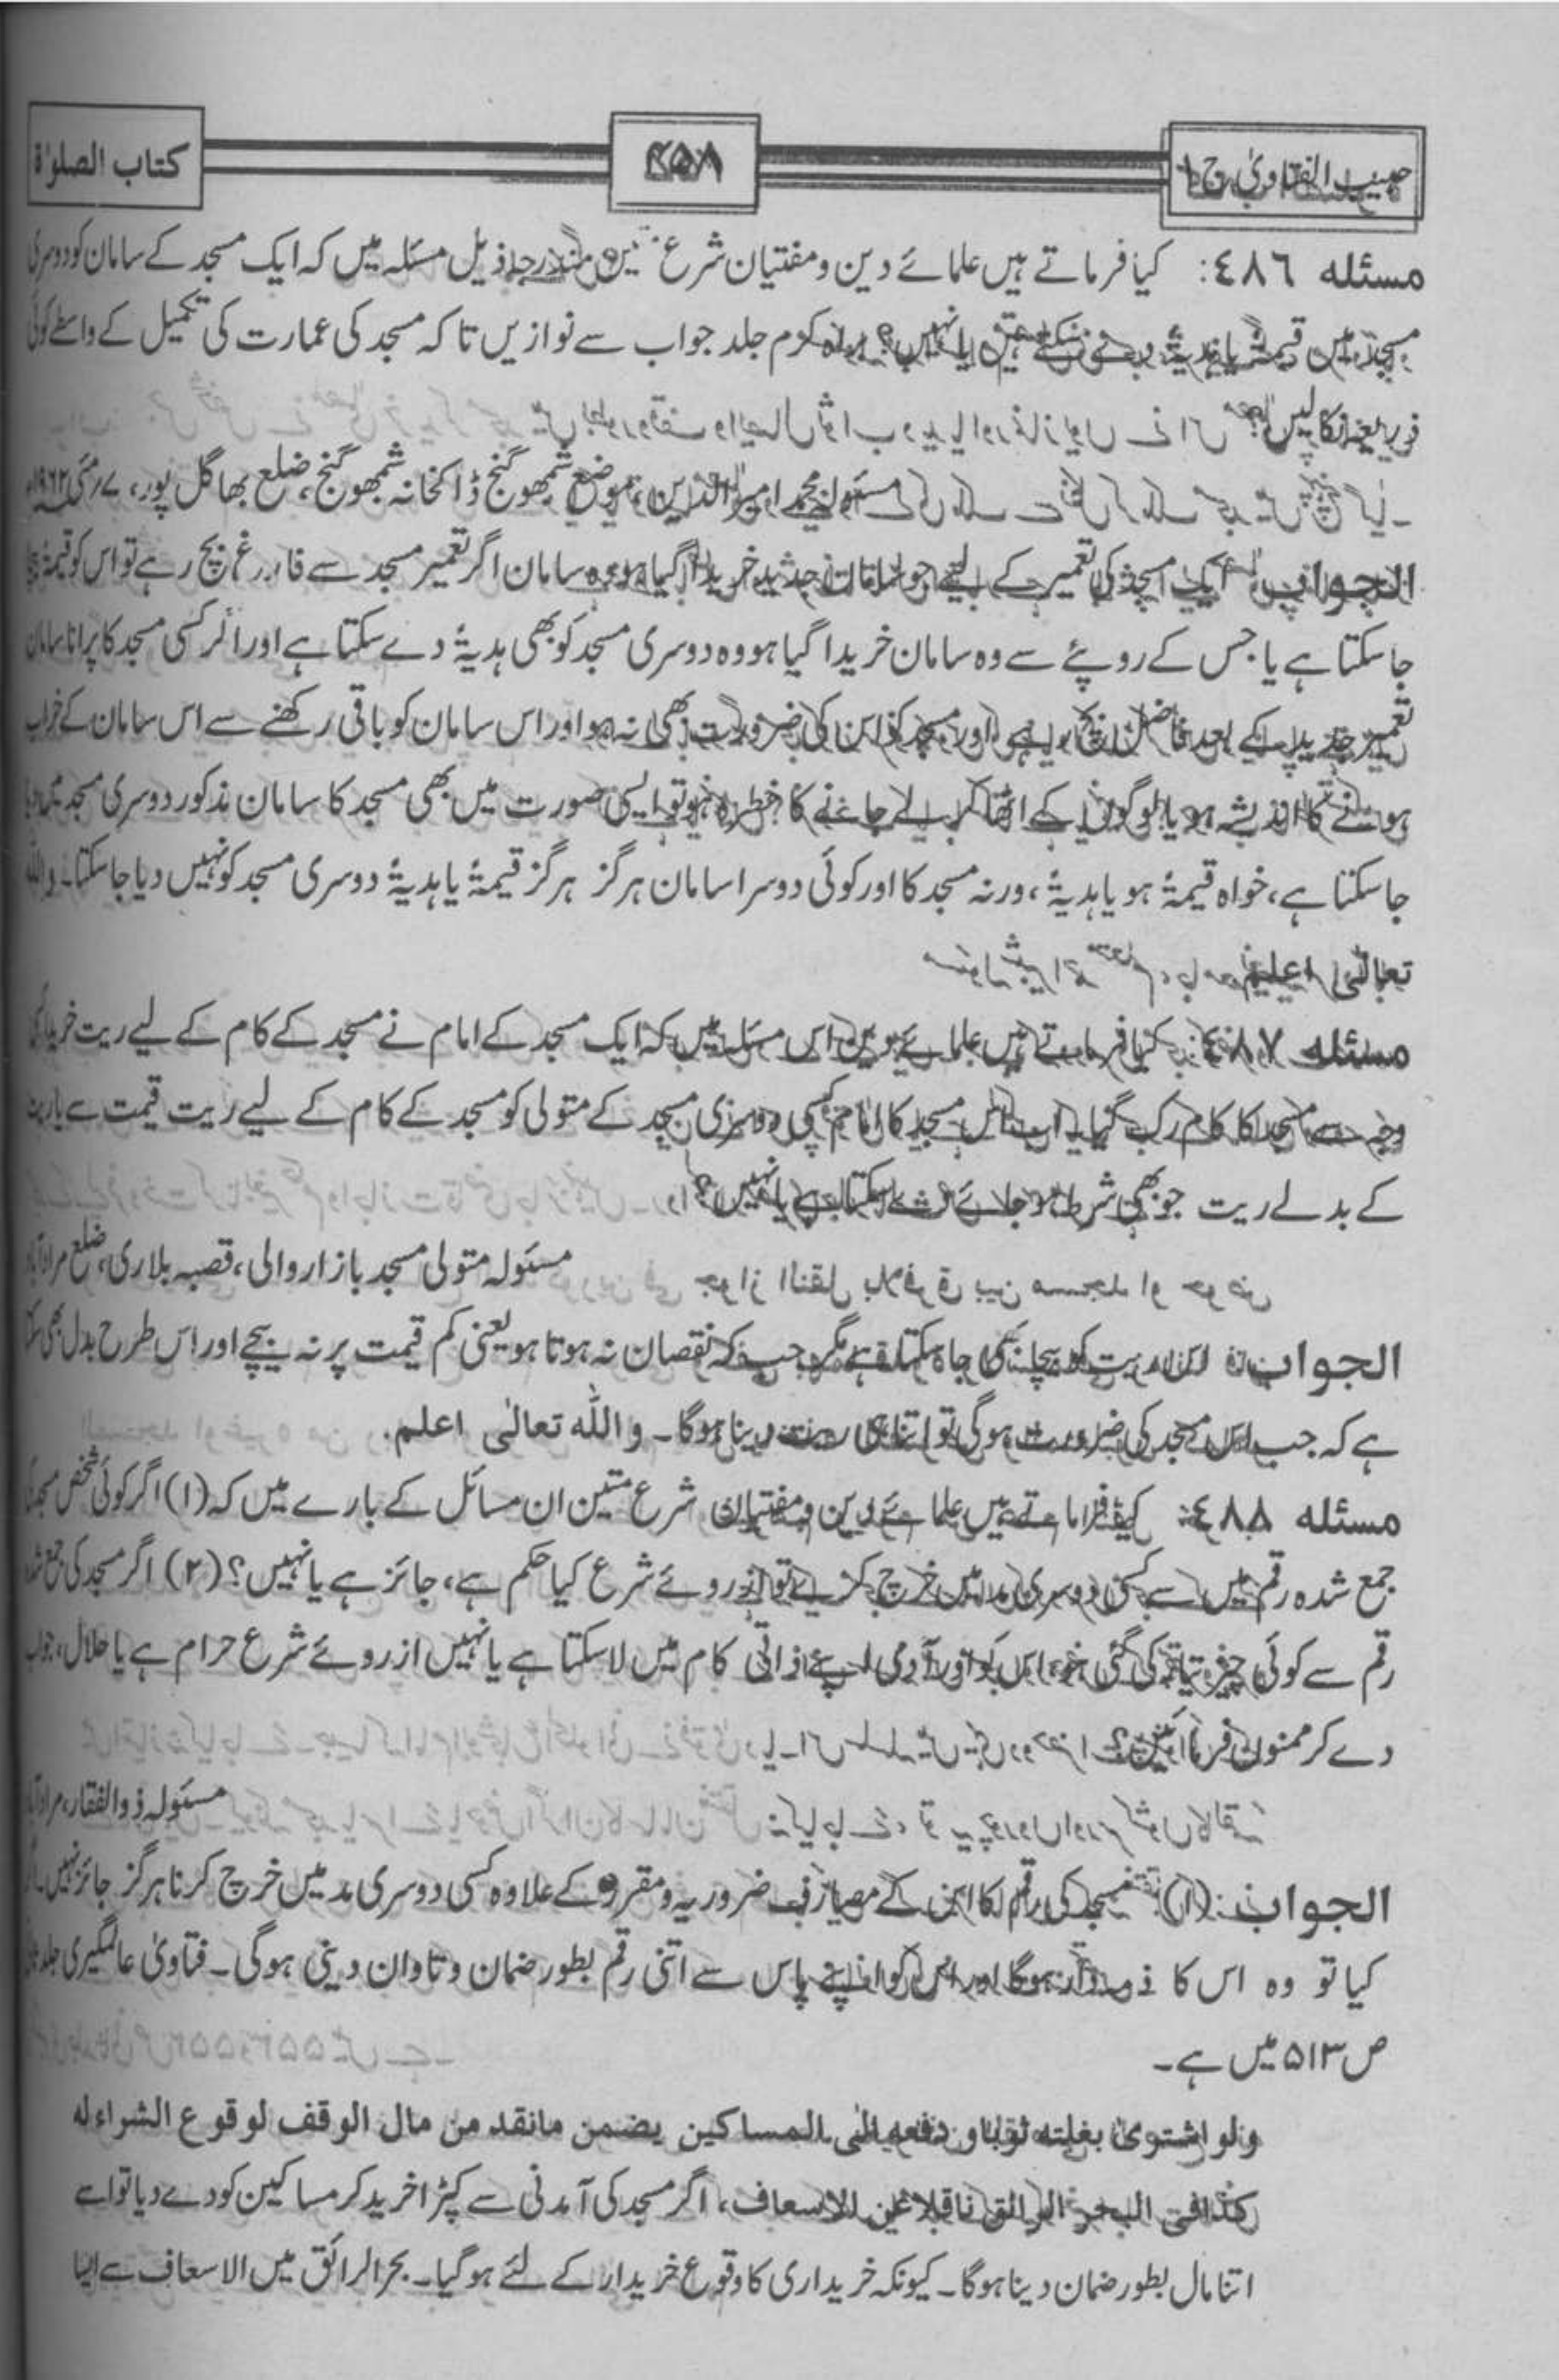 حبیب الفتاویٰ ج ۱
کتاب الصلوٰۃ
مسئلہ ٤٨٦: کیا فرماتے ہیں علمائے دین و مفتیان شرع متین مندرجہ ذیل مسئلہ میں کہ ایک مسجد کے سامان کو دوسری
مسجد میں قیمۃً یا ہدیۃً دے سکتے ہیں یا نہیں؟ براہ کرم جلد جواب سے نوازیں تاکہ مسجد کی عمارت کی تکمیل کے واسطے کوئی
ذریعہ نکالیں؟
مسئولہ محمد امیر الدین، موضع شمبھوگنج ڈاکخانہ شمبھوگنج، ضلع بھاگل پور، ۷ مئی ۱۹۶۲ء
الجواب: ایک مسجد کی تعمیر کے لیے جو سامان جدید خریدا گیا ہو وہ سامان اگر تعمیر مسجد سے فارغ بچ رہے تو اس کو قیمۃً
جاسکتا ہے یا جس کے روپئے سے وہ سامان خریدا گیا ہو وہ دوسری مسجد کو بھی ہدیۃً دے سکتا ہے اور اگر کسی مسجد کا پرانا سامان
تعمیر جدید کے بعد فاضل بچا ہو اور مسجد کو اس کی ضرورت بھی نہ ہو اور اس سامان کو باقی رکھنے سے اس سامان کے خراب
ہونے کا اندیشہ ہو یا لوگوں کے اٹھا کر لے جانے کا خطرہ ہو تو ایسی صورت میں بھی مسجد کا سامان مذکور دوسری مسجد میں
جاسکتا ہے، خواہ قیمۃً ہو یا ہدیۃً، ورنہ مسجد کا اور کوئی دوسرا سامان ہرگز ہرگز قیمۃً یا ہدیۃً دوسری مسجد کو نہیں دیا جاسکتا۔ واللہ
تعالیٰ اعلم
مسئلہ ٤٨٧: کیا فرماتے ہیں علمائے دین اس مسئلہ میں کہ ایک مسجد کے امام نے مسجد کے کام کے لیے ریت خریدا کسی
وجہ سے مسجد کا کام رک گیا۔ اب اس مسجد کا امام کسی دوسری مسجد کے متولی کو مسجد کے کام کے لیے ریت قیمت سے یا ریت
کے بدلے ریت جو بھی شرط ہو جائے دے سکتا ہے یا نہیں؟
مسئولہ متولی مسجد بازار والی، قصبہ بلاری، ضلع مرادآباد
الجواب: اس ریت کو بیچا بھی جا سکتا ہے مگر جب کہ نقصان نہ ہوتا ہو یعنی کم قیمت پر نہ بیچے اور اس طرح بدل بھی سکتا
ہے کہ جب اس مسجد کی ضرورت ہوگی تو اتنا ہی ریت دینا ہوگا۔ واللہ تعالیٰ اعلم.
مسئلہ ٤٨٨: کیا فرماتے ہیں علمائے دین و مفتیان شرع متین ان مسائل کے بارے میں کہ (۱) اگر کوئی شخص مسجد کی
جمع شدہ رقم میں سے کسی دوسری مد میں خرچ کرے تو ازروئے شرع کیا حکم ہے، جائز ہے یا نہیں؟ (۲) اگر مسجد کی جمع شدہ
رقم سے کوئی چیز تیار کی گئی ہو، اس کو اور آدمی اپنے ذاتی کام میں لاسکتا ہے یا نہیں ازروئے شرع حرام ہے یا حلال، جواب
دے کر ممنون فرمائیں؟
مسئولہ ذوالفقار، مرادآباد
الجواب: (۱) مسجد کی رقم کا اس کے مصارف ضروریہ و مقررہ کے علاوہ کسی دوسری مد میں خرچ کرنا ہرگز جائز نہیں۔ اگر
کیا تو وہ اس کا ذمہ دار ہوگا اور اس کو اپنے پاس سے اتنی رقم بطور ضمان و تاوان دینی ہوگی۔ فتاویٰ عالمگیری جلد
ص ۵۱۳ میں ہے۔
ولو اشتریٰ بغلته ثوبا و دفعه الی المساکین یضمن مانقد من مال الوقف لوقوع الشراء له
کذا فی البحر الرائق ناقلا عن الاسعاف، اگر مسجد کی آمدنی سے کپڑا خرید کر مساکین کو دے دیا تو اسے
اتنا مال بطور ضمان دینا ہوگا۔ کیونکہ خریداری کا وقوع خریدار کے لئے ہو گیا۔ بحر الرائق میں الاسعاف سے ایسا